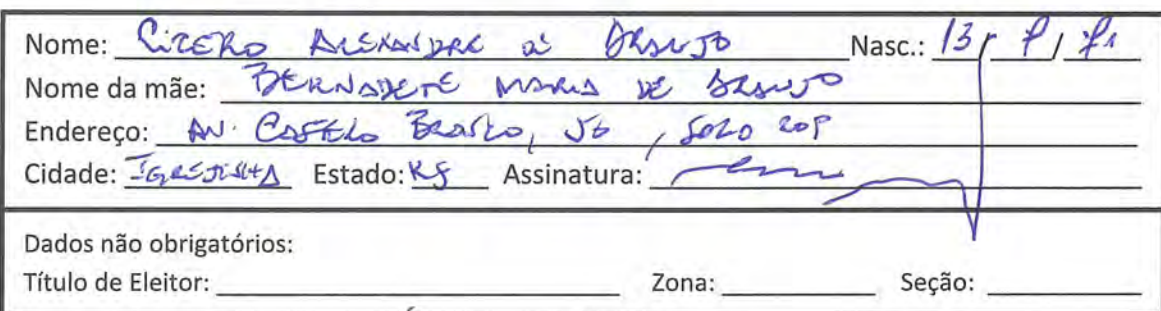 Nome: CICERO ALEXANDRE DE ARAUJO Nasc.: 13 /
Nome da mãe: BERNADETE MARIA DE ARAUJO
Endereço: AV. CASTELO BRANCO, 56,
Cidade: IGREJINHA Estado: RS Assinatura:
Dados não obrigatórios:
Título de Eleitor: Zona: Seção: